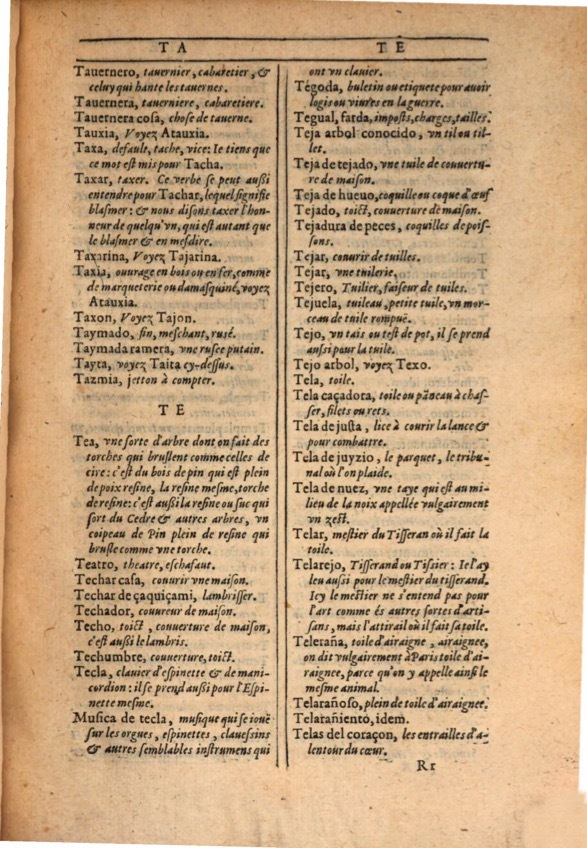 TA
Tauernero, tauernier, cabaretier, &
celuy qui hante les tauernes.
Tauernera, tauerniere, cabaretiere.
Tauernera cosa, chose de tauerne.
Tauxia, Voyez Atauxia.
Taxa, default, tache, vice: Ie tiens que
ce mot est mis pour Tacha.
Taxar, taxer. Ce verbe se peut aussi
entendre pour Tachar, lequel signifie
blasmer: & nous disons taxer l'hon-
neur de quelqu'vn, qui est autant que
le blasmer & en mesdire.
Taxarina, Voyez Tajarina.
Taxia, ouurage en bois ou en fer, comme
de marqueterie ou damasquiné, voyez
Atauxia.
Taxon, Voyez Tajon.
Taymado, fin, meschant, rusé.
Taymada ramera, vne rusee putain.
Tayta, voyez Taita cy-dessus.
Tazmia, jetton à compter.
TE
Tea, vne sorte d'arbre dont on fait des
torches qui bruslent comme celles de
cire: c'est du bois de pin qui est plein
de poix resine, la resine mesme, torche
de resine: c'est aussi la resine ou suc qui
sort du Cedre & autres arbres, vn
coipeau de Pin plein de resine qui
brusle comme vne torche.
Teatro, theatre, eschafaut.
Techar casa, couurir vne maison.
Techar de çaquiçami, lambrisser.
Techador, couureur de maison.
Techo, toict, couuerture de maison,
c'est aussi le lambris.
Techumbre, couuerture, toict.
Tecla, clauier d'espinette & de mani-
cordion: il se prend aussi pour l'Espi-
nette mesme.
Musica de tecla, musique qui se iouë
sur les orgues, espinettes, clauessins
& autres semblables instrumens qui
TE
ont vn clauier.
Tégoda, buletin ou etiquete pour auoir
logis ou viures en la guerre.
Tegual, farda, imposts, charges, tailles.
Teja arbol conocido, vn til ou til-
let.
Teja de tejado, vne tuile de couuertu-
re de maison.
Teja de hueuo, coquille ou coque d'œuf
Tejado, toict, couuerture de maison.
Tejadura de peces, coquilles de pois-
sons.
Tejar, couurir de tuilles.
Tejar, vne tuilerie.
Tejero, Tuilier, faiseur de tuiles.
Tejuela, tuileau, petite tuile, vn mor-
ceau de tuile rompuë.
Tejo, vn tais ou test de pot, il se prend
aussi pour la tuile.
Tejo arbol, voyez Texo.
Tela, toile.
Tela caçadora, toile ou pãneau à chas-
ser, filets ou rets.
Tela de justa, lice à courir la lance &
pour combattre.
Tela de juyzio, le parquet, le tribu-
nal où l'on plaide.
Tela de nuez, vne taye qui est au mi-
lieu de la noix appellée vulgairement
vn zest.
Telar, mestier du Tisseran où il fait la
toile.
Telarejo, Tisserand ou Tissier: Ie l'ay
leu aussi pour le mestier du tisserand.
Icy le mestier ne s'entend pas pour
l'art comme és autres sortes d'arti-
sans, mais l'attirail où il fait sa toile.
Teleraña, toile d'airaigne, airaignee,
on dit vulgairement à Paris toile d'ai-
raignee, parce qu'on y appelle ainsi le
mesme animal.
Telarañoso, plein de toile d'airaignee.
Telarañiento, idem.
Telas del coraçon, les entrailles d'a-
lentour du cœur.
Rr